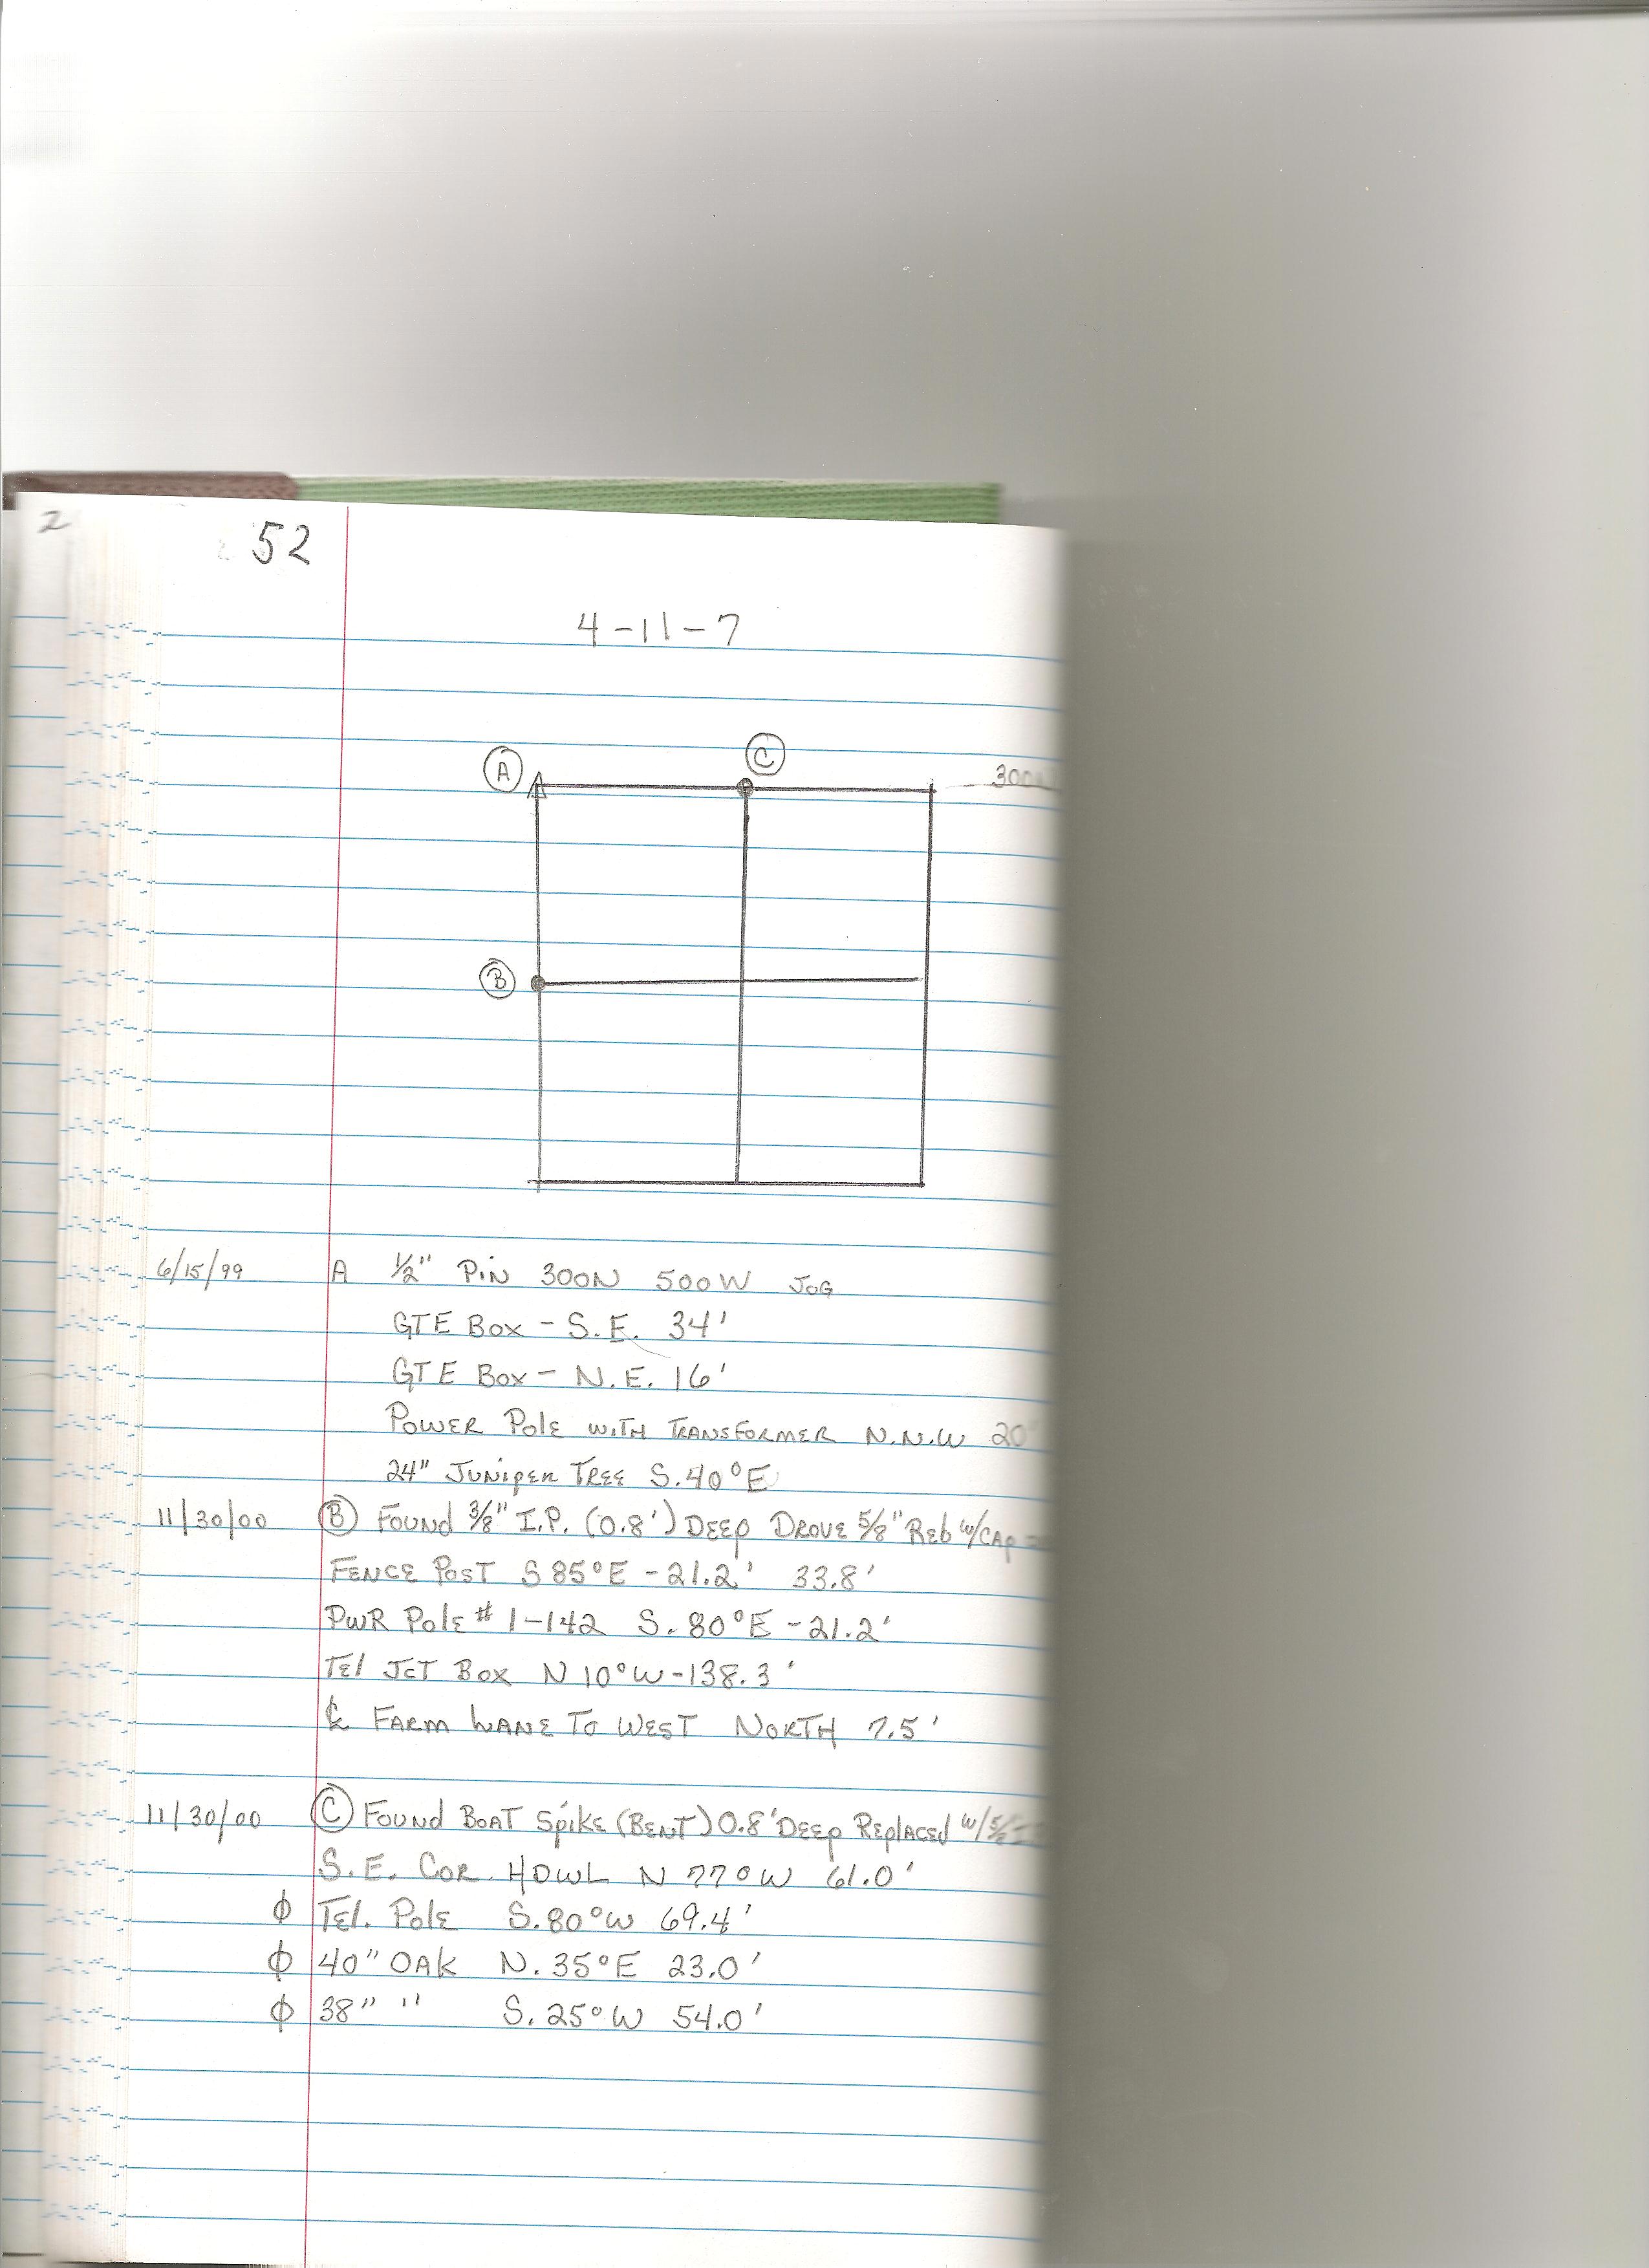 2
52
4-11-7
A
C
300N
B
6/15/99 A 1/2" Pin 300N 500W JOG
GTE Box - S.E. 34'
GTE Box - N.E. 16'
POWER Pole WITH TRANSFORMER N.N.W 20'
24" Juniper Tree S.40°E
11/30/00 B Found 3/8" I.P. (0.8') Deep Drove 5/8" Reb w/CAP
FENCE POST S 85°E - 21.2' 33.8'
PWR Pole # 1-142 S. 80°E - 21.2'
Tel JCT Box N 10°W - 138.3'
℄ FARM LANE TO WEST NORTH 7.5'
11/30/00 C Found BOAT Spike (BENT) 0.8' Deep Replaced w/5/8
S.E. COR. HDWL N 77°W 61.0'
ϕ Tel. Pole S.80°W 69.4'
ϕ 40" OAK N. 35°E 23.0'
ϕ 38" " S. 25°W 54.0'